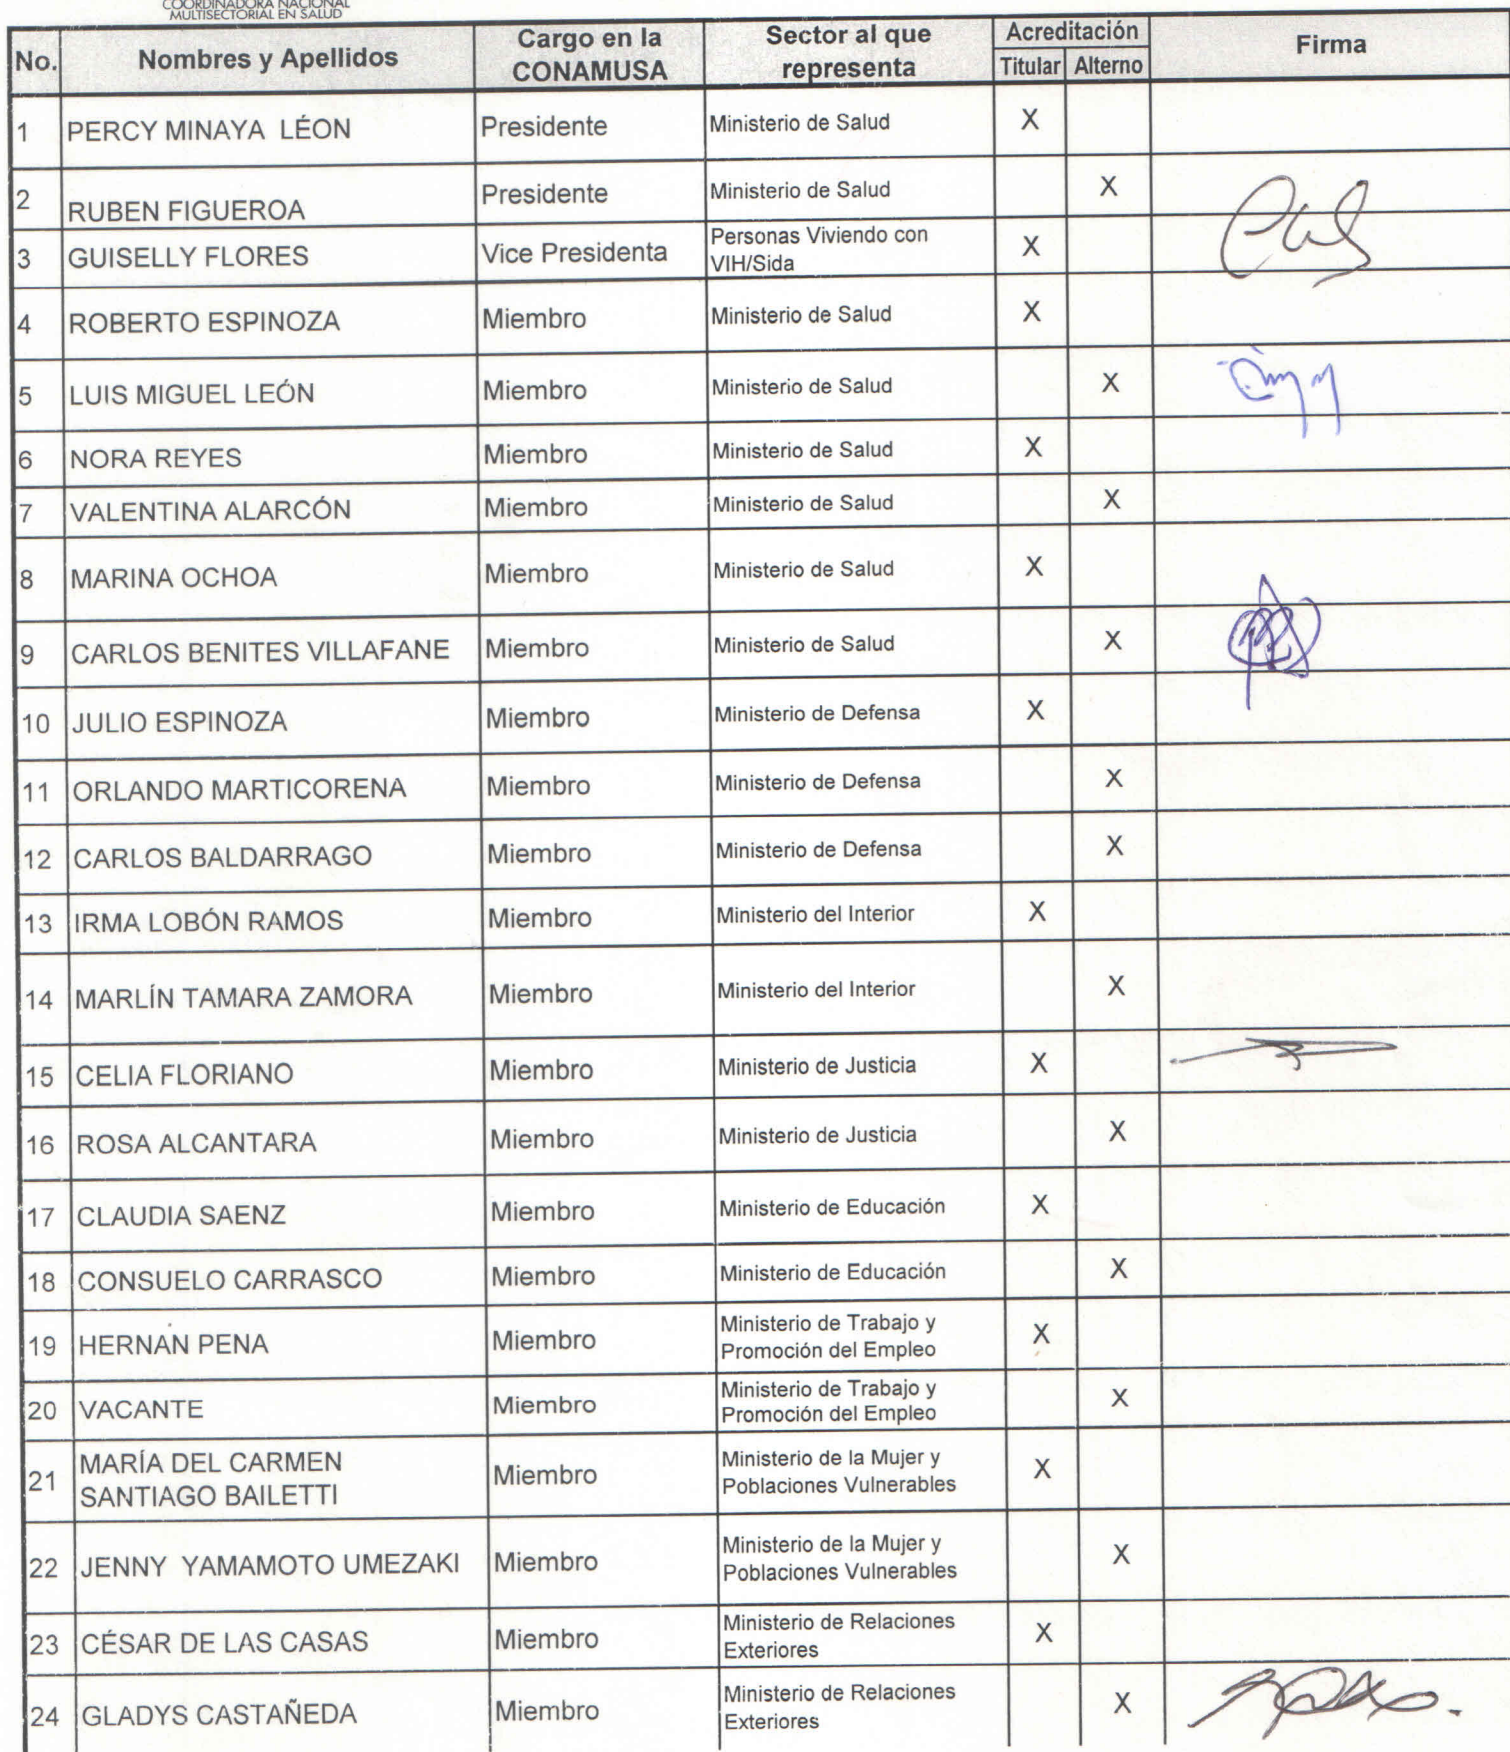 COORDINADORA NACIONAL
MULTISECTORIAL EN SALUD
No. Nombres y Apellidos Cargo en la CONAMUSA Sector al que representa Acreditación Titular Alterno Firma
1 PERCY MINAYA LÉON Presidente Ministerio de Salud X
2 RUBEN FIGUEROA Presidente Ministerio de Salud X
3 GUISELLY FLORES Vice Presidenta Personas Viviendo con VIH/Sida X
4 ROBERTO ESPINOZA Miembro Ministerio de Salud X
5 LUIS MIGUEL LEÓN Miembro Ministerio de Salud X
6 NORA REYES Miembro Ministerio de Salud X
7 VALENTINA ALARCÓN Miembro Ministerio de Salud X
8 MARINA OCHOA Miembro Ministerio de Salud X
9 CARLOS BENITES VILLAFANE Miembro Ministerio de Salud X
10 JULIO ESPINOZA Miembro Ministerio de Defensa X
11 ORLANDO MARTICORENA Miembro Ministerio de Defensa X
12 CARLOS BALDARRAGO Miembro Ministerio de Defensa X
13 IRMA LOBÓN RAMOS Miembro Ministerio del Interior X
14 MARLÍN TAMARA ZAMORA Miembro Ministerio del Interior X
15 CELIA FLORIANO Miembro Ministerio de Justicia X
16 ROSA ALCANTARA Miembro Ministerio de Justicia X
17 CLAUDIA SAENZ Miembro Ministerio de Educación X
18 CONSUELO CARRASCO Miembro Ministerio de Educación X
19 HERNAN PENA Miembro Ministerio de Trabajo y Promoción del Empleo X
20 VACANTE Miembro Ministerio de Trabajo y Promoción del Empleo X
21 MARÍA DEL CARMEN SANTIAGO BAILETTI Miembro Ministerio de la Mujer y Poblaciones Vulnerables X
22 JENNY YAMAMOTO UMEZAKI Miembro Ministerio de la Mujer y Poblaciones Vulnerables X
23 CÉSAR DE LAS CASAS Miembro Ministerio de Relaciones Exteriores X
24 GLADYS CASTAÑEDA Miembro Ministerio de Relaciones Exteriores X